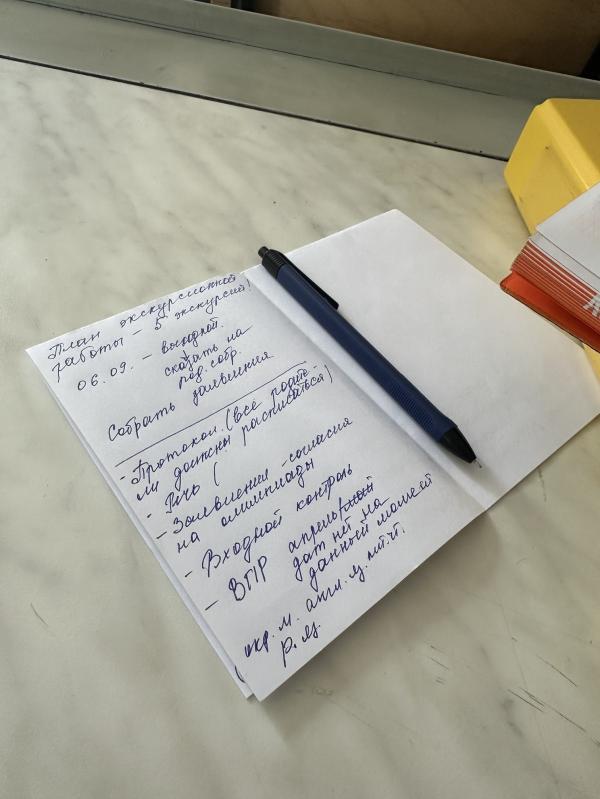 План экскурсионной
работы - 5 экскурсий!
06.09. - выходной.
сказать на
род. собр.
Собрать заявления
- Протокол. (все родите-
ли должны расписаться)
- Речь (
- Заявления -согласия
на олимпиады
- Входной контроль
- ВПР апрель/май
дат нет на
данный момент
окр. м. англ. я. лит.чт.
р. я.